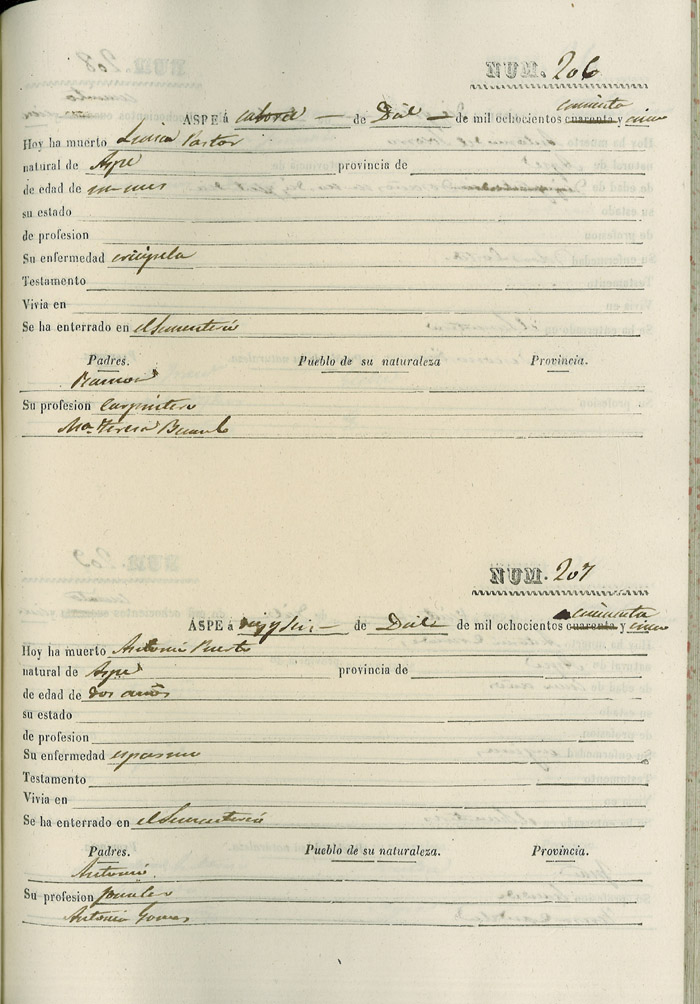 NUM. 206
cincuenta
ASPE á catorce de Dice de mil ochocientos cuarenta y cinco
Hoy ha muerto Luisa Pastor
natural de Aspe provincia de
de edad de un mes
su estado
de profesion
Su enfermedad ericipela
Testamento
Vivia en
Se ha enterrado en el Sementerio
Padres. Pueblo de su naturaleza Provincia.
Ramon
Su profesion Carpintero
Ma. Teresa
NUM. 207
cincuenta
ASPE á de Dice de mil ochocientos cuarenta y cinco
Hoy ha muerto Antonio Puerto
natural de Aspe provincia de
de edad de dos años
su estado
de profesion
Su enfermedad espasmo
Testamento
Vivia en
Se ha enterrado en el Sementerio
Padres. Pueblo de su naturaleza. Provincia.
Antonio
Su profesion Jornalero
Antonia Gomes